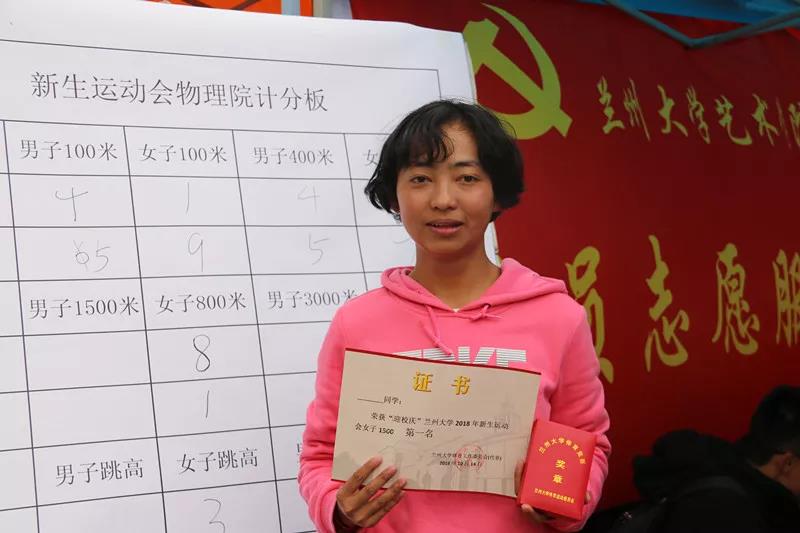 新生运动会物理院计分板
男子100米 女子100米 男子400米 女
4 1 4
5 9 5
男子1500米 女子800米 男子3000米
8
1
男子跳高 女子跳高
3
兰州大学艺术
员志愿服
证书
同学:
荣获“迎校庆”兰州大学2018年新生运动
会女子1500 第一名
兰州大学体育运动委员会(代章)
2018年10月14日
兰州大学体育竞赛
奖章
兰州大学体育运动委员会